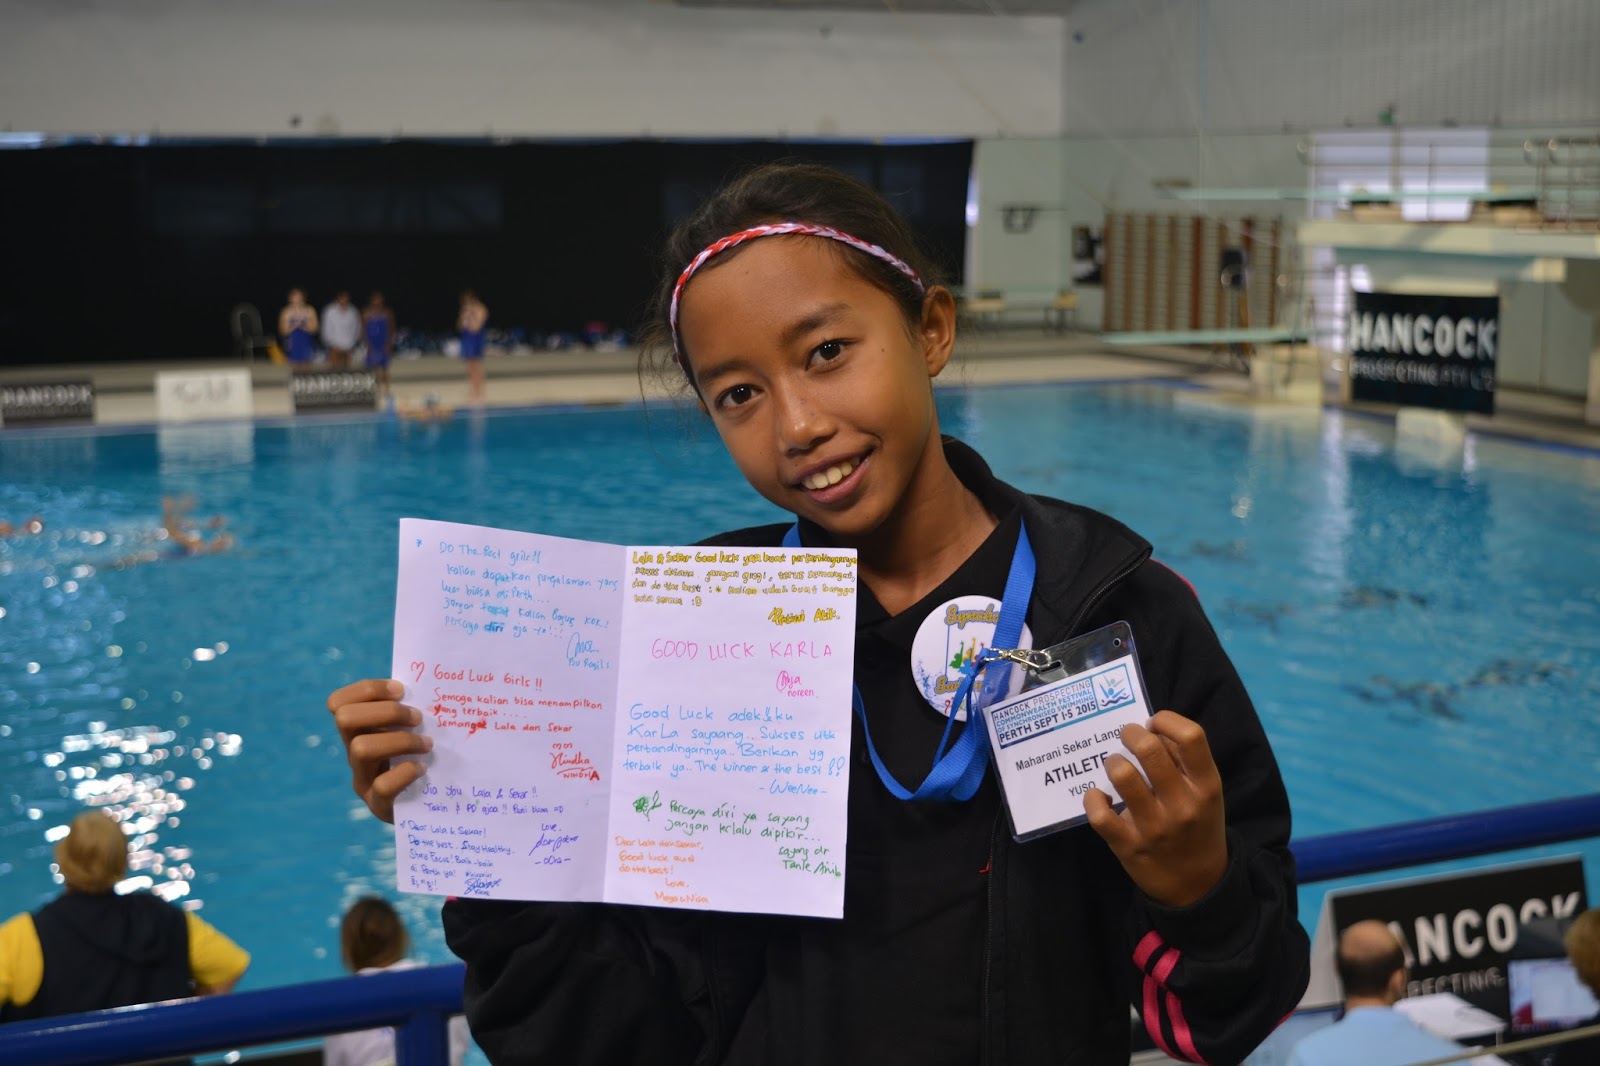 * DO The Best girls!!
kalian dapatkan perjalanan yang
luar biasa di Perth....
jangan kalian bagus kok!
percaya diri aja ya!!!
Good Luck Girls !!
Semoga kalian bisa menampilkan
yang terbaik ....
Semangat Lala dan Sekar
Jia You Lala & Sekar !!
Yakin & PD ajaa !! Pasti bisaa =D
Love,
Dear Lala & Sekar!
Do the best. Stay Healthy.
Stay Focus! Baik-baik
di Perth ya!
Lala & Sekar Good luck yaa buat pertandingannya
jangan grogi, terus semangat,
dan do the best : * kalian udah buat bangga
kita semua :D
GOOD LUCK KARLA
noreen.
Good Luck adek"ku
KarLa sayaang.. Sukses utk
pertandingannya.. Berikan yg
terbaik ya.. The winner is the best!!
- WeeNee -
Percaya diri ya sayang
jangan terlalu dipikir...
sayang dr
Tante
Dear Lala dan Sekar,
Good luck and
do the best!
Love,
Mega & Nisa
HANCOCK PROSPECTING
COMMONWEALTH FESTIVAL
OF SYNCHRONISED SWIMMING
PERTH SEPT 1-5 2015
Maharani Sekar Langit
ATHLETE
YUSO
HANCOCK
PROSPECTING PTY LTD
HANCOCK
HANCOCK